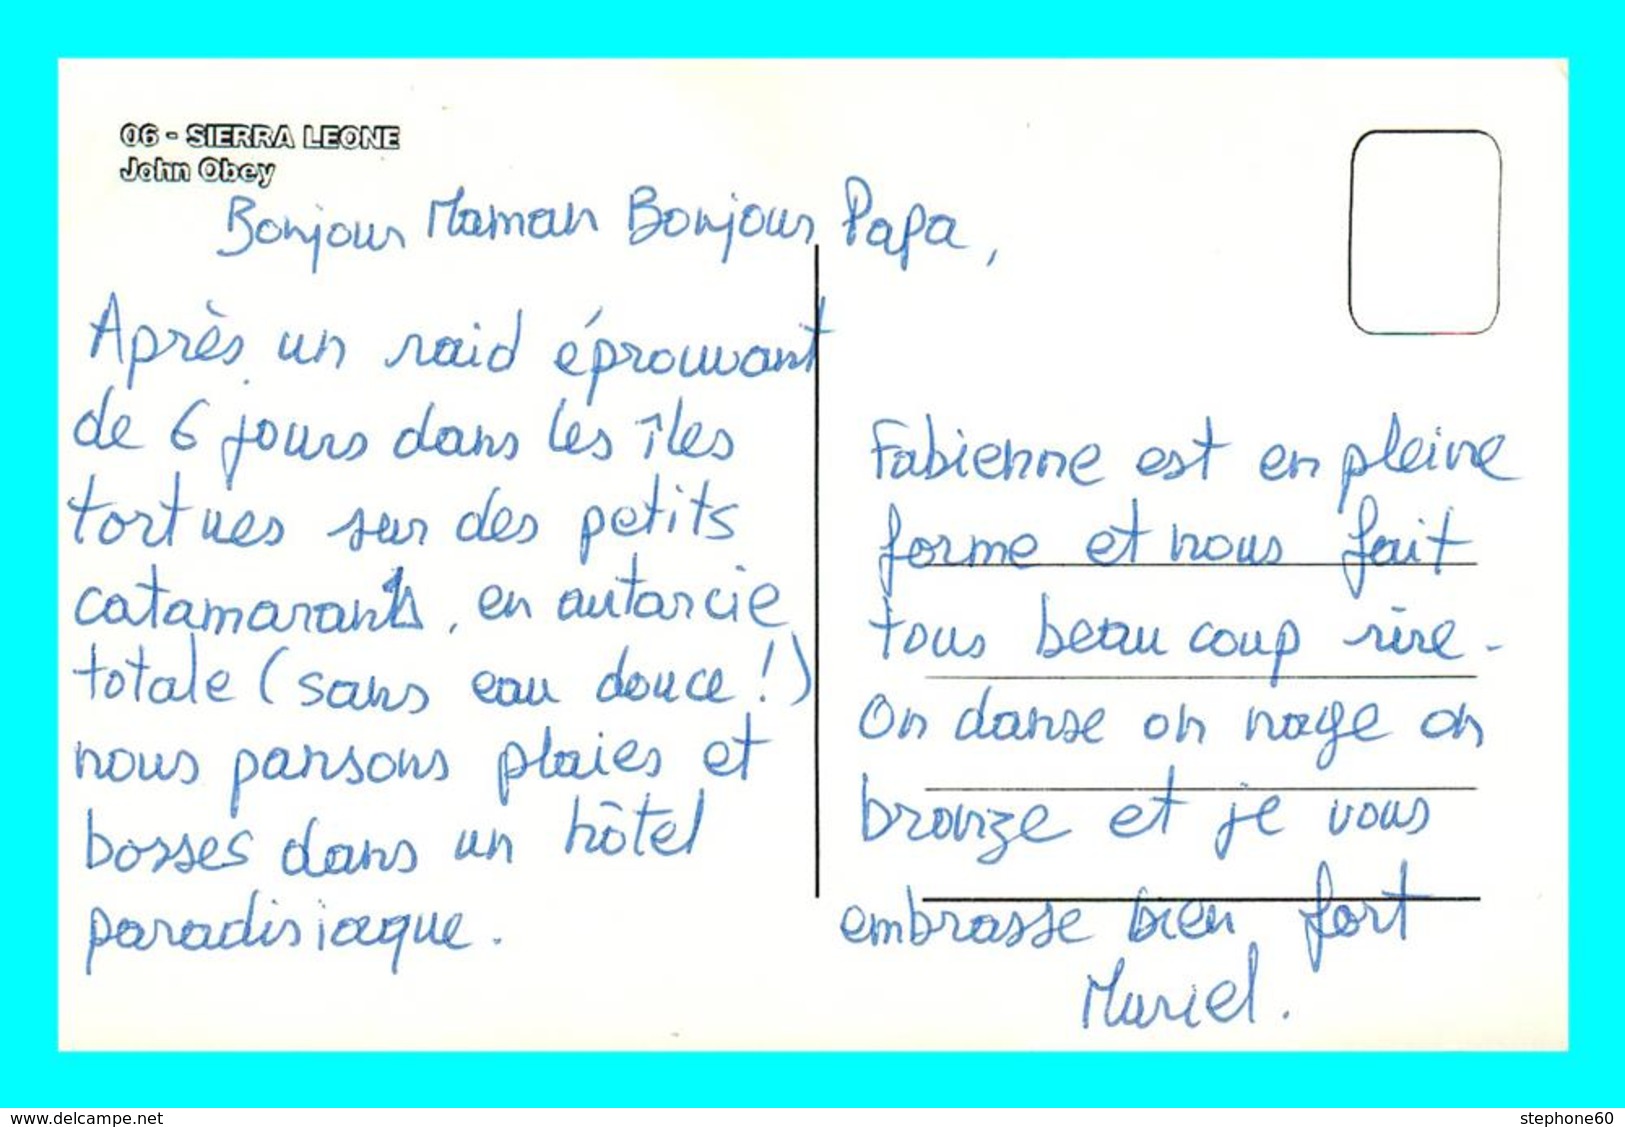 06 - SIERRA LEONE
John Obey
Bonjour Maman Bonjour Papa,
Après un raid éprouvant
de 6 jours dans les îles
tortues sur des petits
catamarans, en autarcie
totale (sans eau douce !)
nous pansons plaies et
bosses dans un hôtel
paradisiaque.
Fabienne est en pleine
forme et nous fait
tous beaucoup rire -
On danse on nage on
bronze et je vous
embrasse bien fort
Muriel.
www.delcampe.net
stephone60